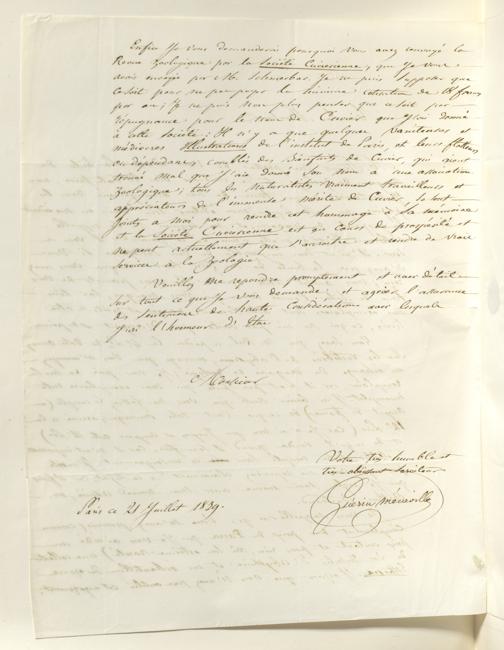 Enfin Je vous demanderai pourquoi vous avez renvoyé la
Revue Zoologique par la Société Cuvierienne, que Je vous
avais envoyée par Mr. Je ne puis supposer que
ce soit pour ne pas payer la minime cotisation de francs
par an; Je ne puis non plus penser que ce soit par
repugnance pour le nom de Cuvier que J'ai donné
à cette société; Il n'y a que quelques vaniteuses et
médiocres Illustrations de l'institut de Paris, et leurs flatteurs
ou dépendans, comblés des bienfaits de Cuvier, qui aient
trouvé mal que J'aie donné son nom à une association
zoologique; tous les naturalistes vraiment travailleurs et
appréciateurs de l'immense mérite de Cuvier, se sont
joints à moi pour rendre cet hommage à sa mémoire
et la Société Cuvierienne est en cours de prospérité et
ne peut actuellement que s'accroître et rendre de vrais
services à la Zoologie.
Veuillez me repondre promptement et avec détail
sur tout ce que Je vous demande et agréer l'assurance
des sentimens de haute considération avec lesquels
J'ai l'honneur d'être
Monsieur
Votre très humble et
très obéissant serviteur
Guérin Méneville
Paris ce 21 Juillet 1839.